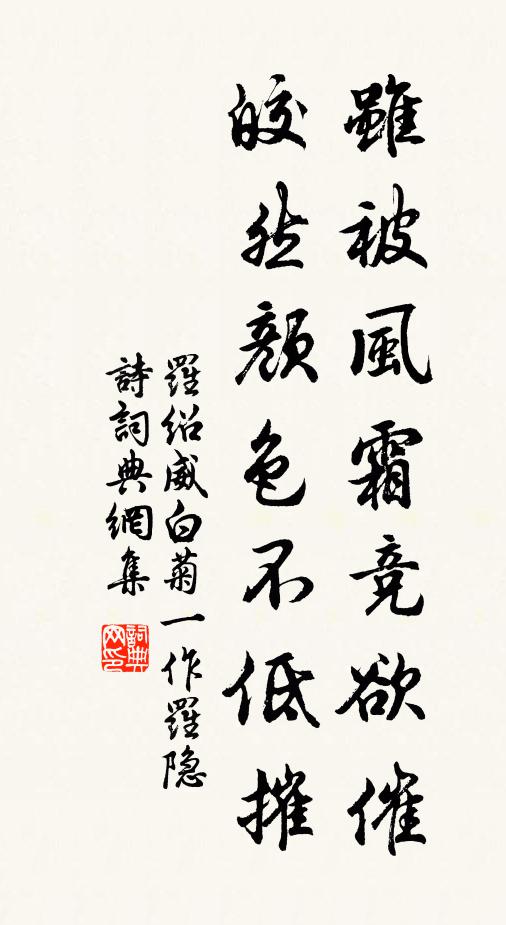 雖被風霜竞欲催
皎然顏色不低摧
羅紹威白菊一作羅隐
詩詞典網集
詞典网印